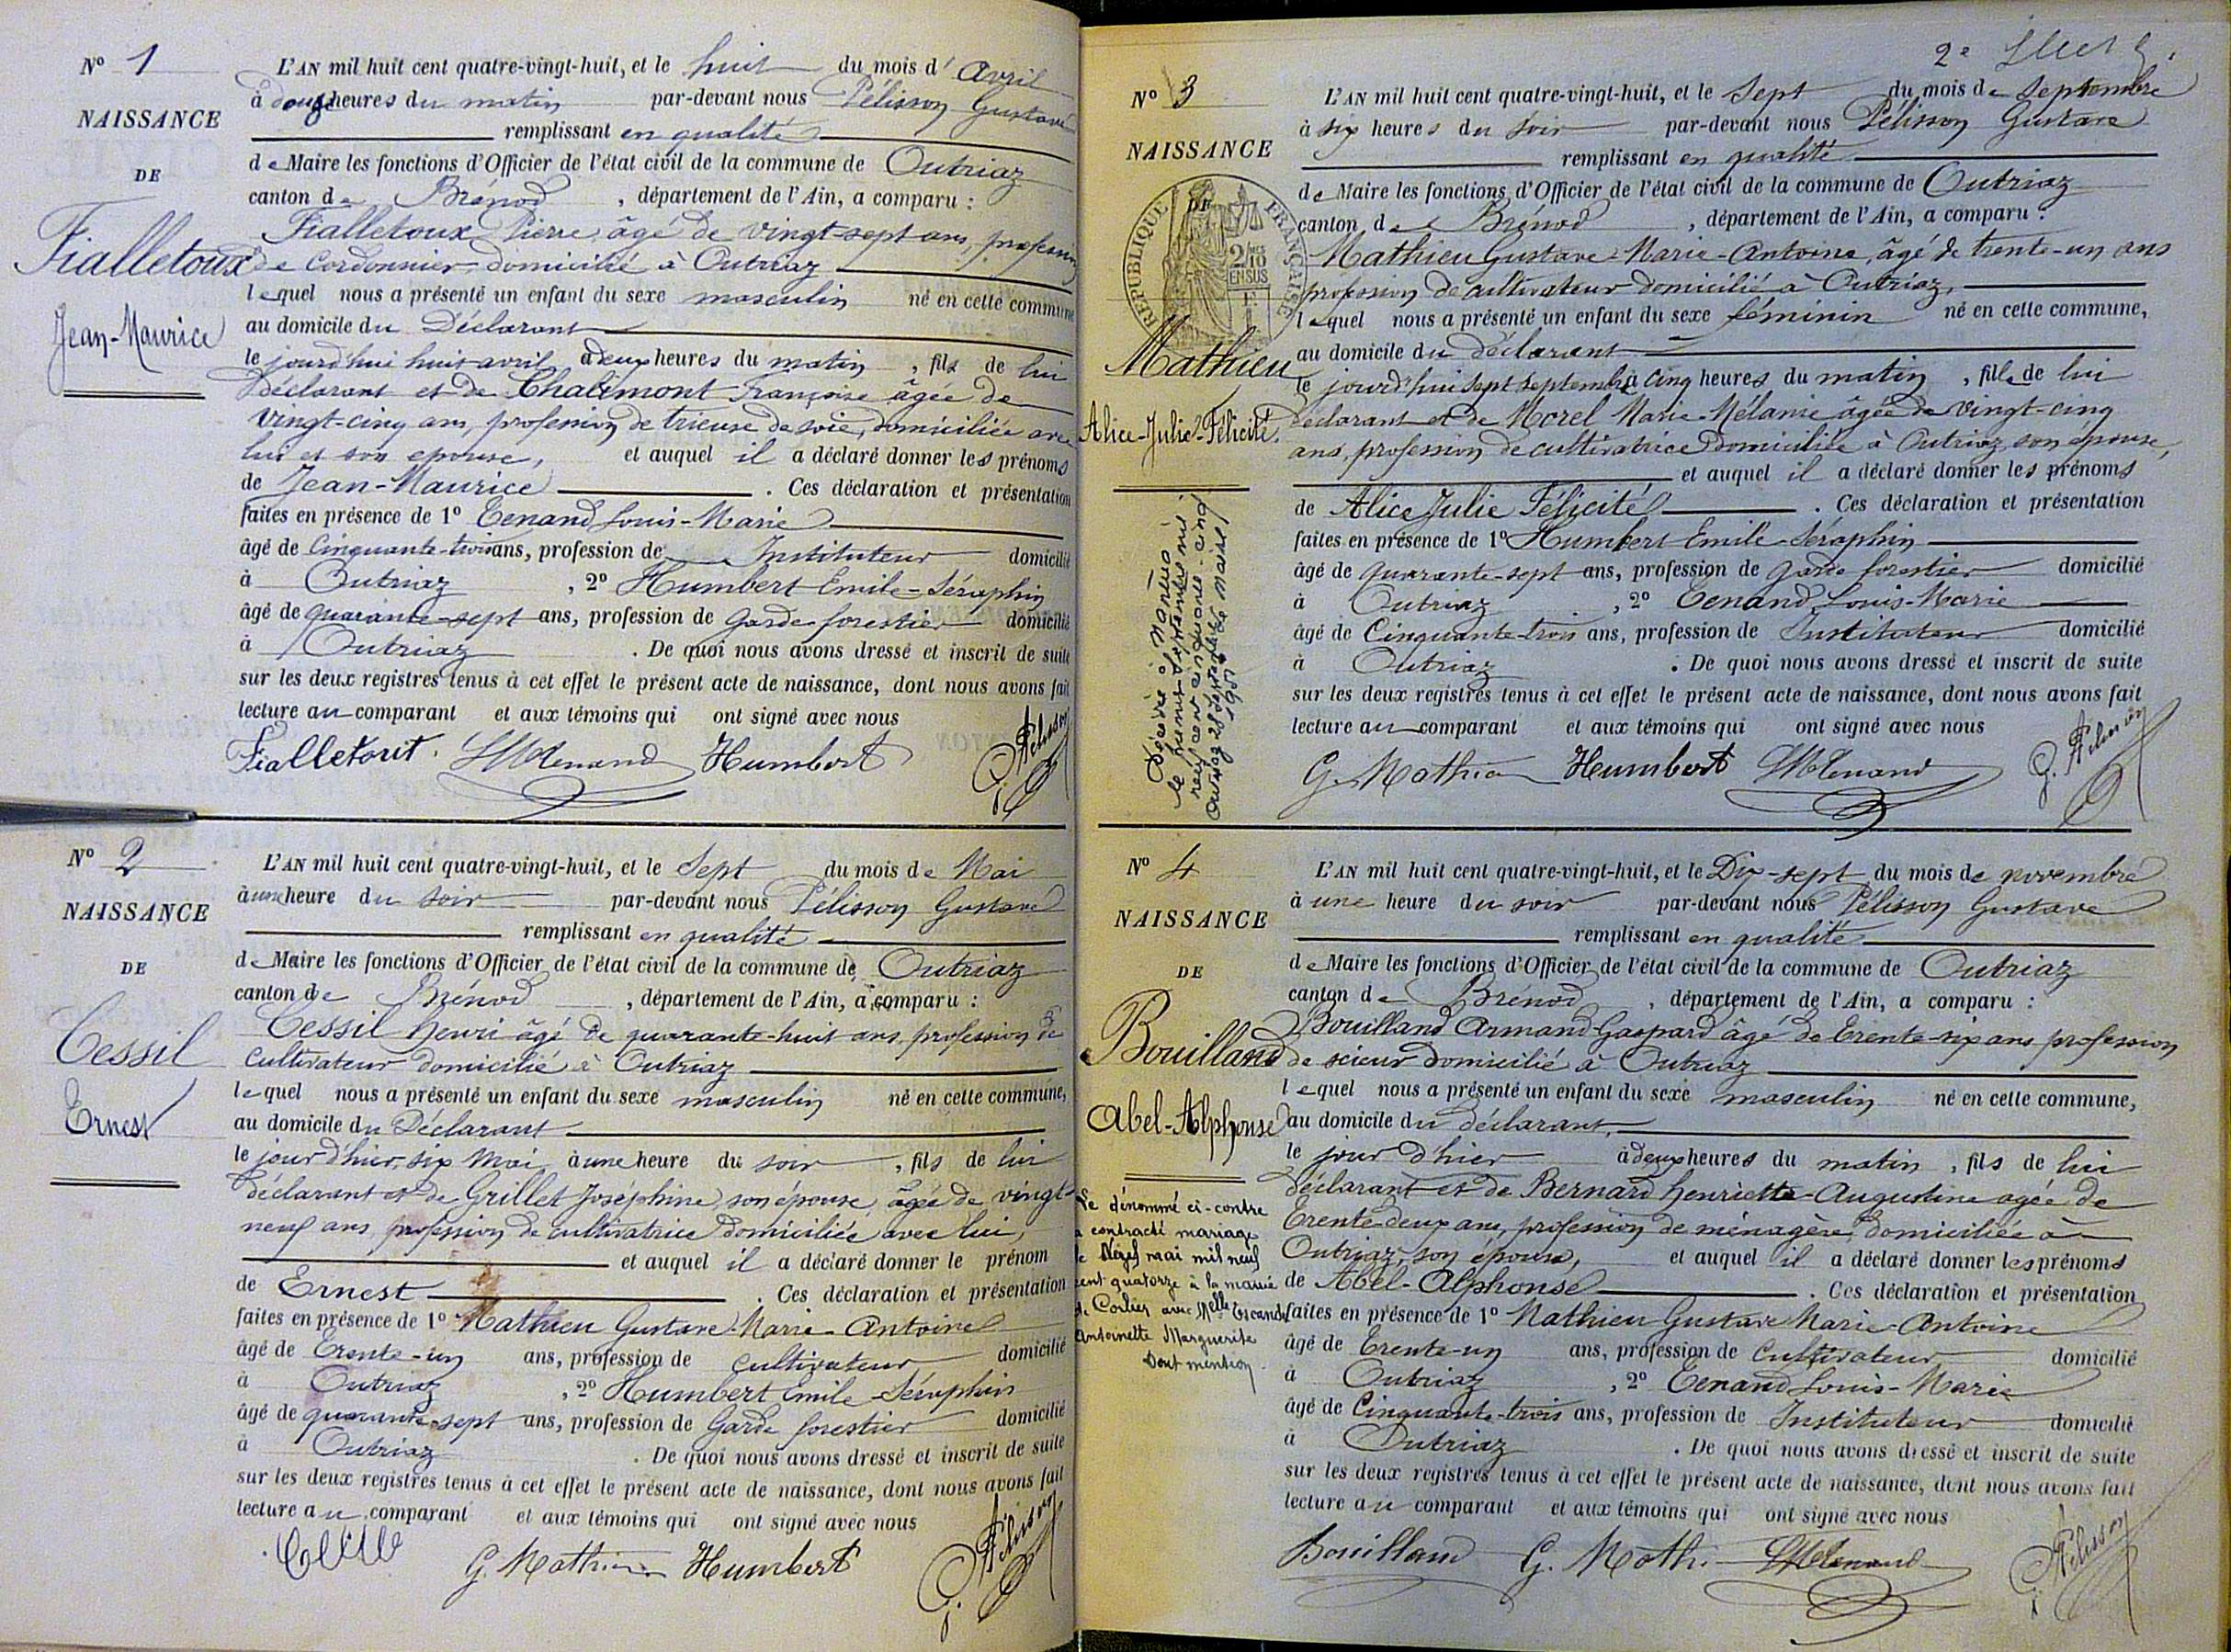 N° 1
NAISSANCE
DE
Fialletoux
Jean-Maurice
L'AN mil huit cent quatre-vingt-huit, et le huit du mois d'Avril
à douze heures du matin par-devant nous Pélisson Gustave
remplissant en qualité
de Maire les fonctions d'Officier de l'état civil de la commune de Outriaz
canton de Brénod, département de l'Ain, a comparu :
Fialletoux Pierre âgé de vingt-sept ans, profession
de cordonnier, domicilié à Outriaz
lequel nous a présenté un enfant du sexe masculin né en cette commune
au domicile du Déclarant
le jourd'hui huit avril à deux heures du matin, fils de lui
déclarant et de Chalimont Françoise âgée de
vingt-cinq ans, profession de trieuse de soie, domiciliée avec
lui et son epouse, et auquel il a déclaré donner les prénoms
de Jean-Maurice. Ces déclaration et présentation
faites en présence de 1° Tenand Louis-Marie
âgé de Cinquante-trois ans, profession de Instituteur domicilié
à Outriaz, 2° Humbert Emile-Séraphin
âgé de quarante-sept ans, profession de Garde forestier domicilié
à Outriaz. De quoi nous avons dressé et inscrit de suite
sur les deux registres tenus à cet effet le présent acte de naissance, dont nous avons fait
lecture au comparant et aux témoins qui ont signé avec nous
Fialletout. LMTenand Humbert G. Pélisson
N° 2
NAISSANCE
DE
Tessil
Ernest
L'AN mil huit cent quatre-vingt-huit, et le Sept du mois de Mai
à une heure du soir par-devant nous Pélisson Gustave
remplissant en qualité
de Maire les fonctions d'Officier de l'état civil de la commune de Outriaz
canton de Brénod, département de l'Ain, a comparu :
Tessil henri âgé de quarante-huit ans, profession de
cultivateur domicilié à Outriaz
lequel nous a présenté un enfant du sexe masculin né en cette commune,
au domicile du Déclarant
le jour d'hier, six Mai, à une heure du soir, fils de lui
déclarant et de Grillet Joséphine, son épouse, âgée de vingt-
neuf ans, profession de cultivatrice domiciliée avec lui,
et auquel il a déclaré donner le prénom
de Ernest. Ces déclaration et présentation
faites en présence de 1° Mathieu Gustave-Marie-Antoine
âgé de Trente-un ans, profession de cultivateur domicilié
à Outriaz, 2° Humbert Emile-Séraphin
âgé de quarante-sept ans, profession de Garde forestier domicilié
à Outriaz. De quoi nous avons dressé et inscrit de suite
sur les deux registres tenus à cet effet le présent acte de naissance, dont nous avons fait
lecture au comparant et aux témoins qui ont signé avec nous
G. Mathieu Humbert G. Pélisson
2e
N° 3
NAISSANCE
DE
RÉPUBLIQUE FRANÇAISE
2/10 EN SUS
Mathieu
Alice-Julie-Félicité
Décédée à Nantua
le premier septembre mil
neuf cent cinquante-cinq
Outriaz 28 septembre
1955 Le Maire
L'AN mil huit cent quatre-vingt-huit, et le Sept du mois de Septembre
à six heures du soir par-devant nous Pélisson Gustave
remplissant en qualité
de Maire les fonctions d'Officier de l'état civil de la commune de Outriaz
canton de Brénod, département de l'Ain, a comparu :
Mathieu Gustave-Marie-Antoine, âgé de trente-un ans
profession de cultivateur domicilié à Outriaz,
lequel nous a présenté un enfant du sexe féminin né en cette commune,
au domicile du déclarant
le jourd'hui sept septembre à cinq heures du matin, fille de lui
déclarant et de Morel Marie-Mélanie âgée de vingt-cinq
ans, profession de cultivatrice domiciliée à Outriaz, son épouse,
et auquel il a déclaré donner les prénoms
de Alice Julie Félicité. Ces déclaration et présentation
faites en présence de 1° Humbert Emile-Séraphin
âgé de quarante-sept ans, profession de garde forestier domicilié
à Outriaz, 2° Tenand Louis-Marie
âgé de Cinquante-trois ans, profession de Instituteur domicilié
à Outriaz. De quoi nous avons dressé et inscrit de suite
sur les deux registres tenus à cet effet le présent acte de naissance, dont nous avons fait
lecture au comparant et aux témoins qui ont signé avec nous
G. Mathieu Humbert LMTenand G. Pélisson
N° 4
NAISSANCE
DE
Bouilland
Abel-Alphonse
Le dénommé ci-contre
a contracté mariage
le mai mil neuf
cent quatorze à la mairie
de Corlier avec Melle
Antoinette Marguerite
Dont mention.
L'AN mil huit cent quatre-vingt-huit, et le Dix-sept du mois de novembre
à une heure du soir par-devant nous Pélisson Gustave
remplissant en qualité
de Maire les fonctions d'Officier de l'état civil de la commune de Outriaz
canton de Brénod, département de l'Ain, a comparu :
Bouilland Armand Gaspard âgé de Trente-six ans profession
de scieur domicilié à Outriaz
lequel nous a présenté un enfant du sexe masculin né en cette commune,
au domicile du déclarant,
le jour d'hier à deux heures du matin, fils de lui
déclarant et de Bernard henriette-Augustine agée de
Trente-deux ans, profession de ménagère, domiciliée à
Outriaz, son épouse, et auquel il a déclaré donner les prénoms
de Abel-Alphonse. Ces déclaration et présentation
faites en présence de 1° Mathieu Gustave Marie-Antoine
âgé de Trente-un ans, profession de Cultivateur domicilié
à Outriaz, 2° Tenand Louis-Marie
âgé de Cinquante-trois ans, profession de Instituteur domicilié
à Outriaz. De quoi nous avons dressé et inscrit de suite
sur les deux registres tenus à cet effet le présent acte de naissance, dont nous avons fait
lecture au comparant et aux témoins qui ont signé avec nous
Bouilland G. Mathieu LMTenand G. Pélisson